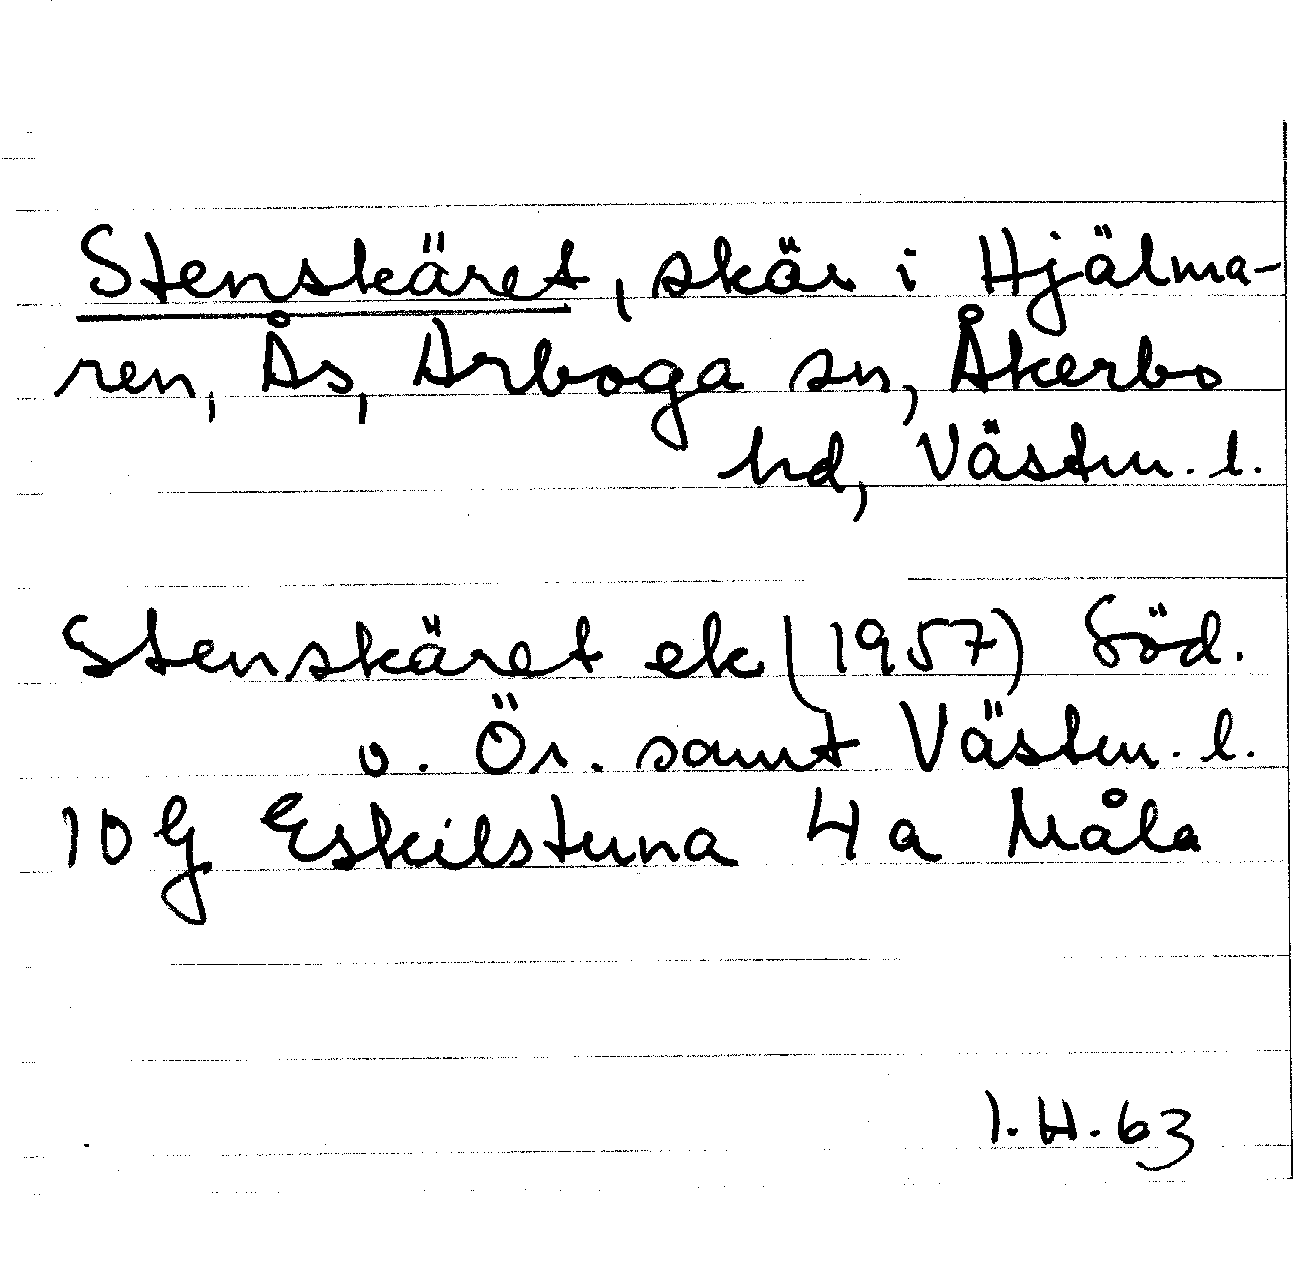 Stenskäret, skär i Hjälma-
ren, Ås, Arboga sn, Åkerbo
hd, Västm. l.
Stenskäret ek (1957) Söd.
o. Ör. samt Västm. l.
10 G Eskilstuna 4 a Måla
I. H. 63